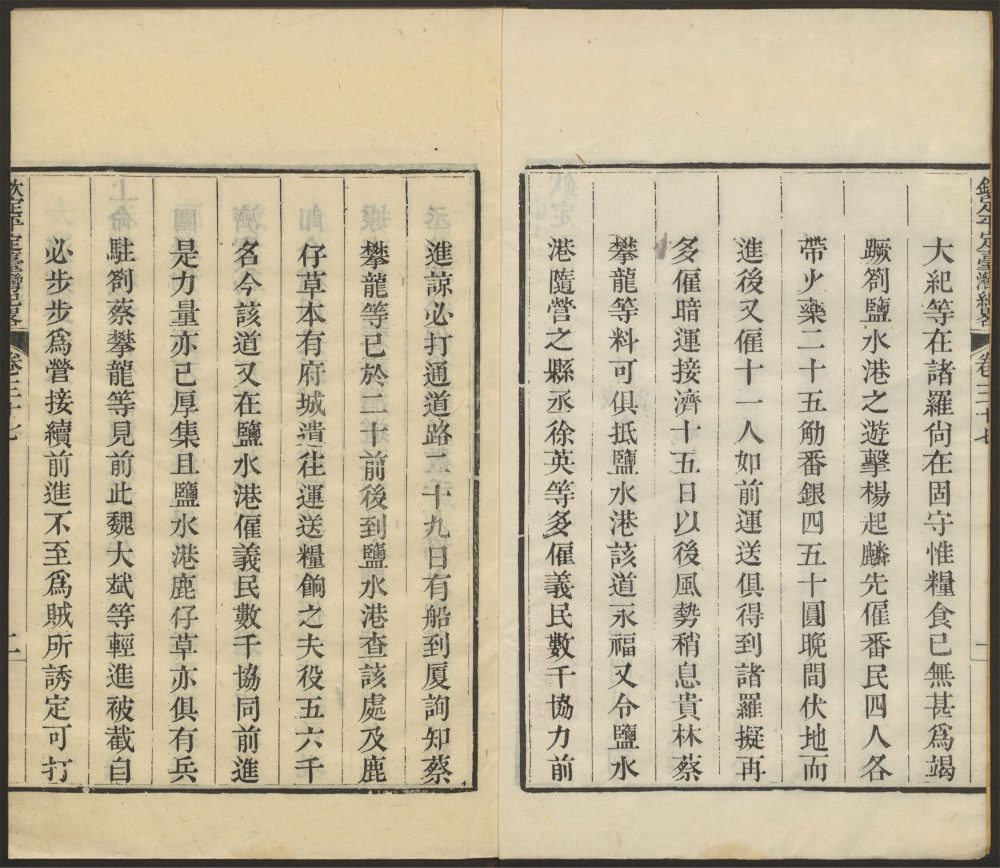 欽定平定臺灣紀畧
卷三十七
大紀等在諸羅尙在固守惟糧食已無甚爲竭
蹶劄鹽水港之遊擊楊起麟先僱番民四人各
帶火藥二十五觔番銀四五十圓晚間伏地而
進後又僱十一人如前運送俱得到諸羅擬再
多僱暗運接濟十五日以後風勢稍息貴林蔡
攀龍等料可俱抵鹽水港該道永福又令鹽水
港隨營之縣丞徐英等多僱義民數千協力前
進諒必打通道路二十九日有船到厦詢知蔡
攀龍等已於二十前後到鹽水港查該處及鹿
仔草本有府城遣往運送糧餉之夫役五六千
名今該道又在鹽水港僱義民數千協同前進
是力量亦已厚集且鹽水港鹿仔草亦俱有兵
駐劄蔡攀龍等見前此魏大斌等輕進被截自
必步步爲營接續前進不至爲賊所誘定可打
欽定平定臺灣紀畧
卷三十七
二